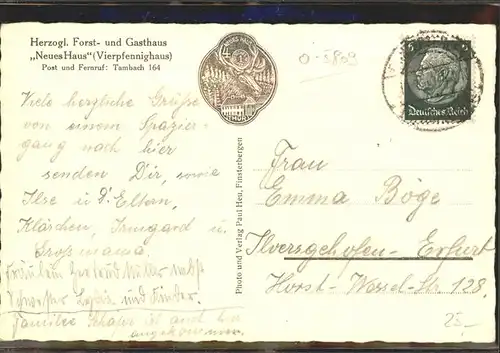 Herzogl. Forst- und Gasthaus
„Neues Haus" (Vierpfennighaus)
Post und Fernruf: Tambach 164
O-5809
6
Deutsches Reich
Viele herzliche Grüße
von einem Spazier-
gang nach hier
senden Dir, sowie
Ilse u d. Eltern,
Klärchen, Irmgard u
Großmama.
Fräulein nebst
Schwester und Kinder.
Familie ist auch
angekommen.
Photo und Verlag Paul Heu, Finsterbergen
Frau
Emma Böge
Ilversgehofen-Erfurt
Horst-Wessel-Str. 128.
25-